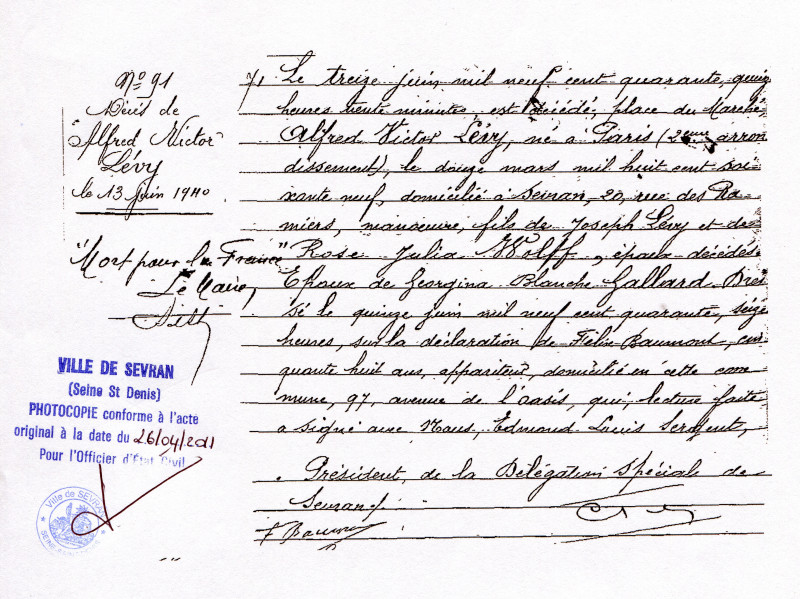 Nº 91
Décès de
"Alfred Victor"
Lévy
le 13 juin 1940
"Mort pour la France"
Le Maire,
VILLE DE SEVRAN
(Seine St Denis)
PHOTOCOPIE conforme à l'acte
original à la date du 26/04/2011
Pour l'Officier d'État Civil
Ville de SEVRAN
7/ Le treize juin mil neuf cent quarante, quinze
heures trente minutes, est décédé, place du Marché,
Alfred Victor Lévy, né à Paris (2eme arron
dissement), le douze mars mil huit cent soi-
xante neuf, domicilié à Sevran, 20, rue des Ra-
miers, manœuvre, fils de Joseph Lévy et de
Rose Julia Wolff, époux décédés.
Epoux de Georgina Blanche Gallard. Dres
sé le quinze juin mil neuf cent quarante, seize
heures, sur la déclaration de Félix Baumont, cin
quante huit ans, appariteur, domicilié en cette com-
mune, 97, avenue de l'oasis, qui, lecture faite
a signé avec Nous, Edmond Louis Sergent,
Président, de la Délégation Spéciale de
Sevran./.
F Baumont